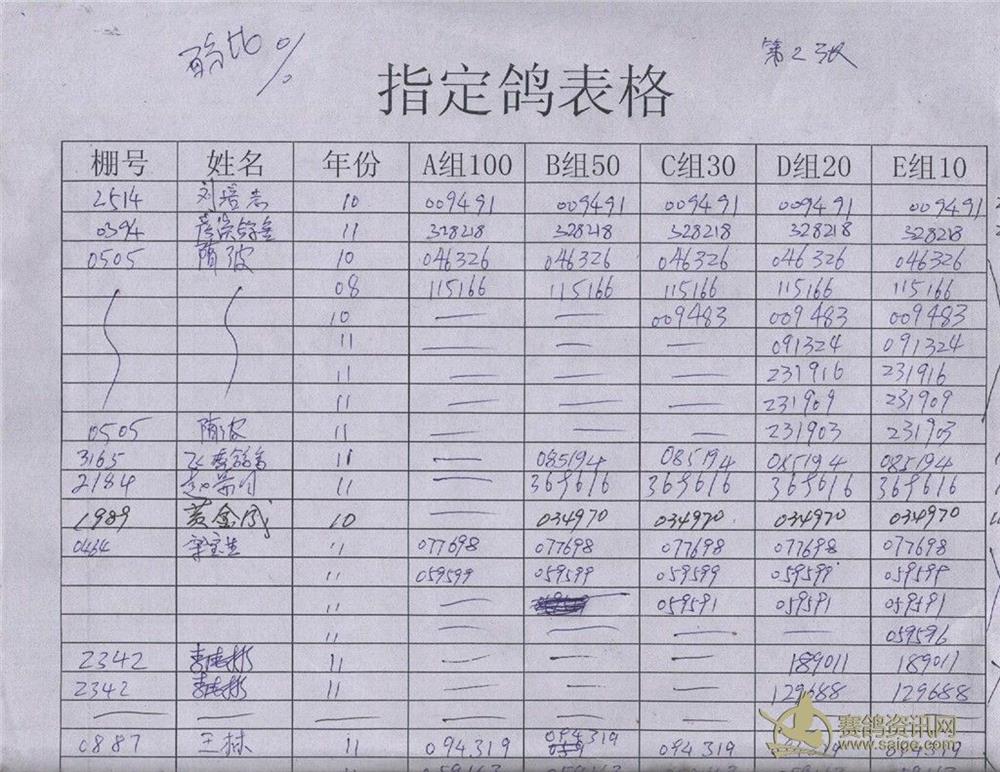 百分比 %
第2张
指定鸽表格
棚号 姓名 年份 A组100 B组50 C组30 D组20 E组10
2514 刘培志 10 009491 009491 009491 009491 009491
0394 11 328218 328218 328218 328218 328218
0505 隋波 10 046326 046326 046326 046326 046326
08 115166 115166 115166 115166 115166
10 — — 009483 009483 009483
11 — — — 091324 091324
11 — — — 231916 231916
11 — — — 231909 231909
0505 隋波 11 — — — 231903 231903
3165 11 — 085194 085194 085194 085194
2184 11 — 365616 365616 365616 365616
1989 黄金成 10 — 034970 034970 034970 034970
0464 梁宝生 11 077698 077698 077698 077698 077698
11 059599 059599 059599 059599 059599
11 — 059591 059591 059591
11 — — — — 059596
2342 11 — — — 189011 189011
2342 11 — — — 129688 129688
— — — — — —
0887 王林 11 094319 094319 094319 094319
赛鸽资讯网
www.saige.com